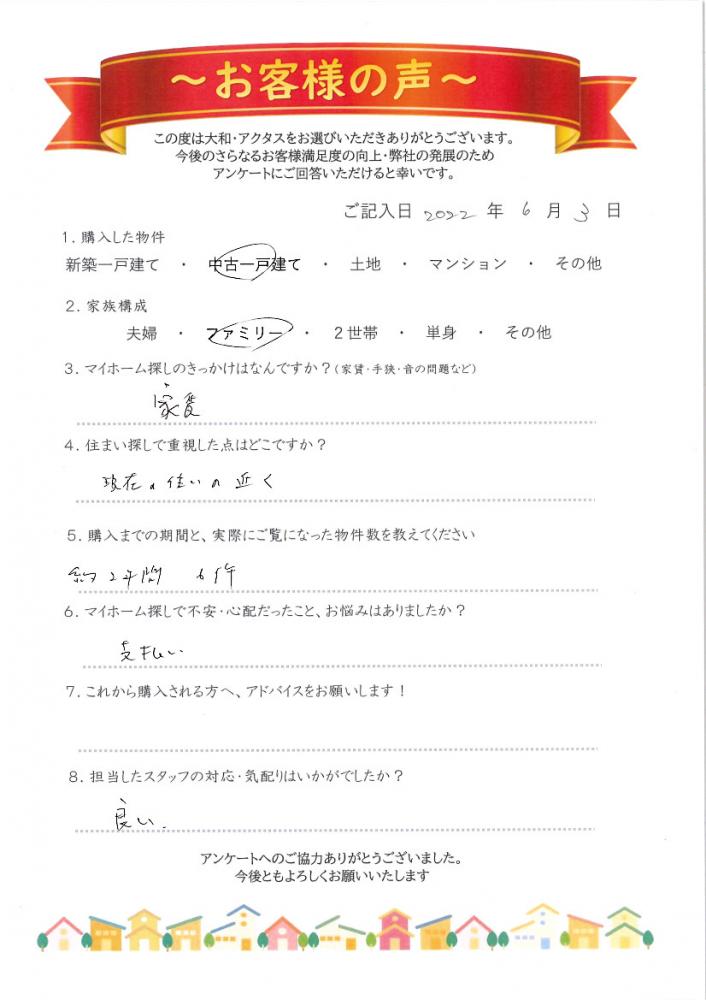 ～お客様の声～
この度は大和・アクタスをお選びいただきありがとうございます。
今後のさらなるお客様満足度の向上・弊社の発展のため
アンケートにご回答いただけると幸いです。
ご記入日 2022 年 6 月 3 日
1. 購入した物件
新築一戸建て ・ 中古一戸建て ・ 土地 ・ マンション ・ その他
2. 家族構成
夫婦 ・ ファミリー ・ 2世帯 ・ 単身 ・ その他
3. マイホーム探しのきっかけはなんですか？(家賃・手狭・音の問題など)
家賃
4. 住まい探しで重視した点はどこですか？
現在の住いの近く
5. 購入までの期間と、実際にご覧になった物件数を教えてください
約2年間 6件
6. マイホーム探しで不安・心配だったこと、お悩みはありましたか？
支払い
7. これから購入される方へ、アドバイスをお願いします！
8. 担当したスタッフの対応・気配りはいかがでしたか？
良い.
アンケートへのご協力ありがとうございました。
今後ともよろしくお願いいたします